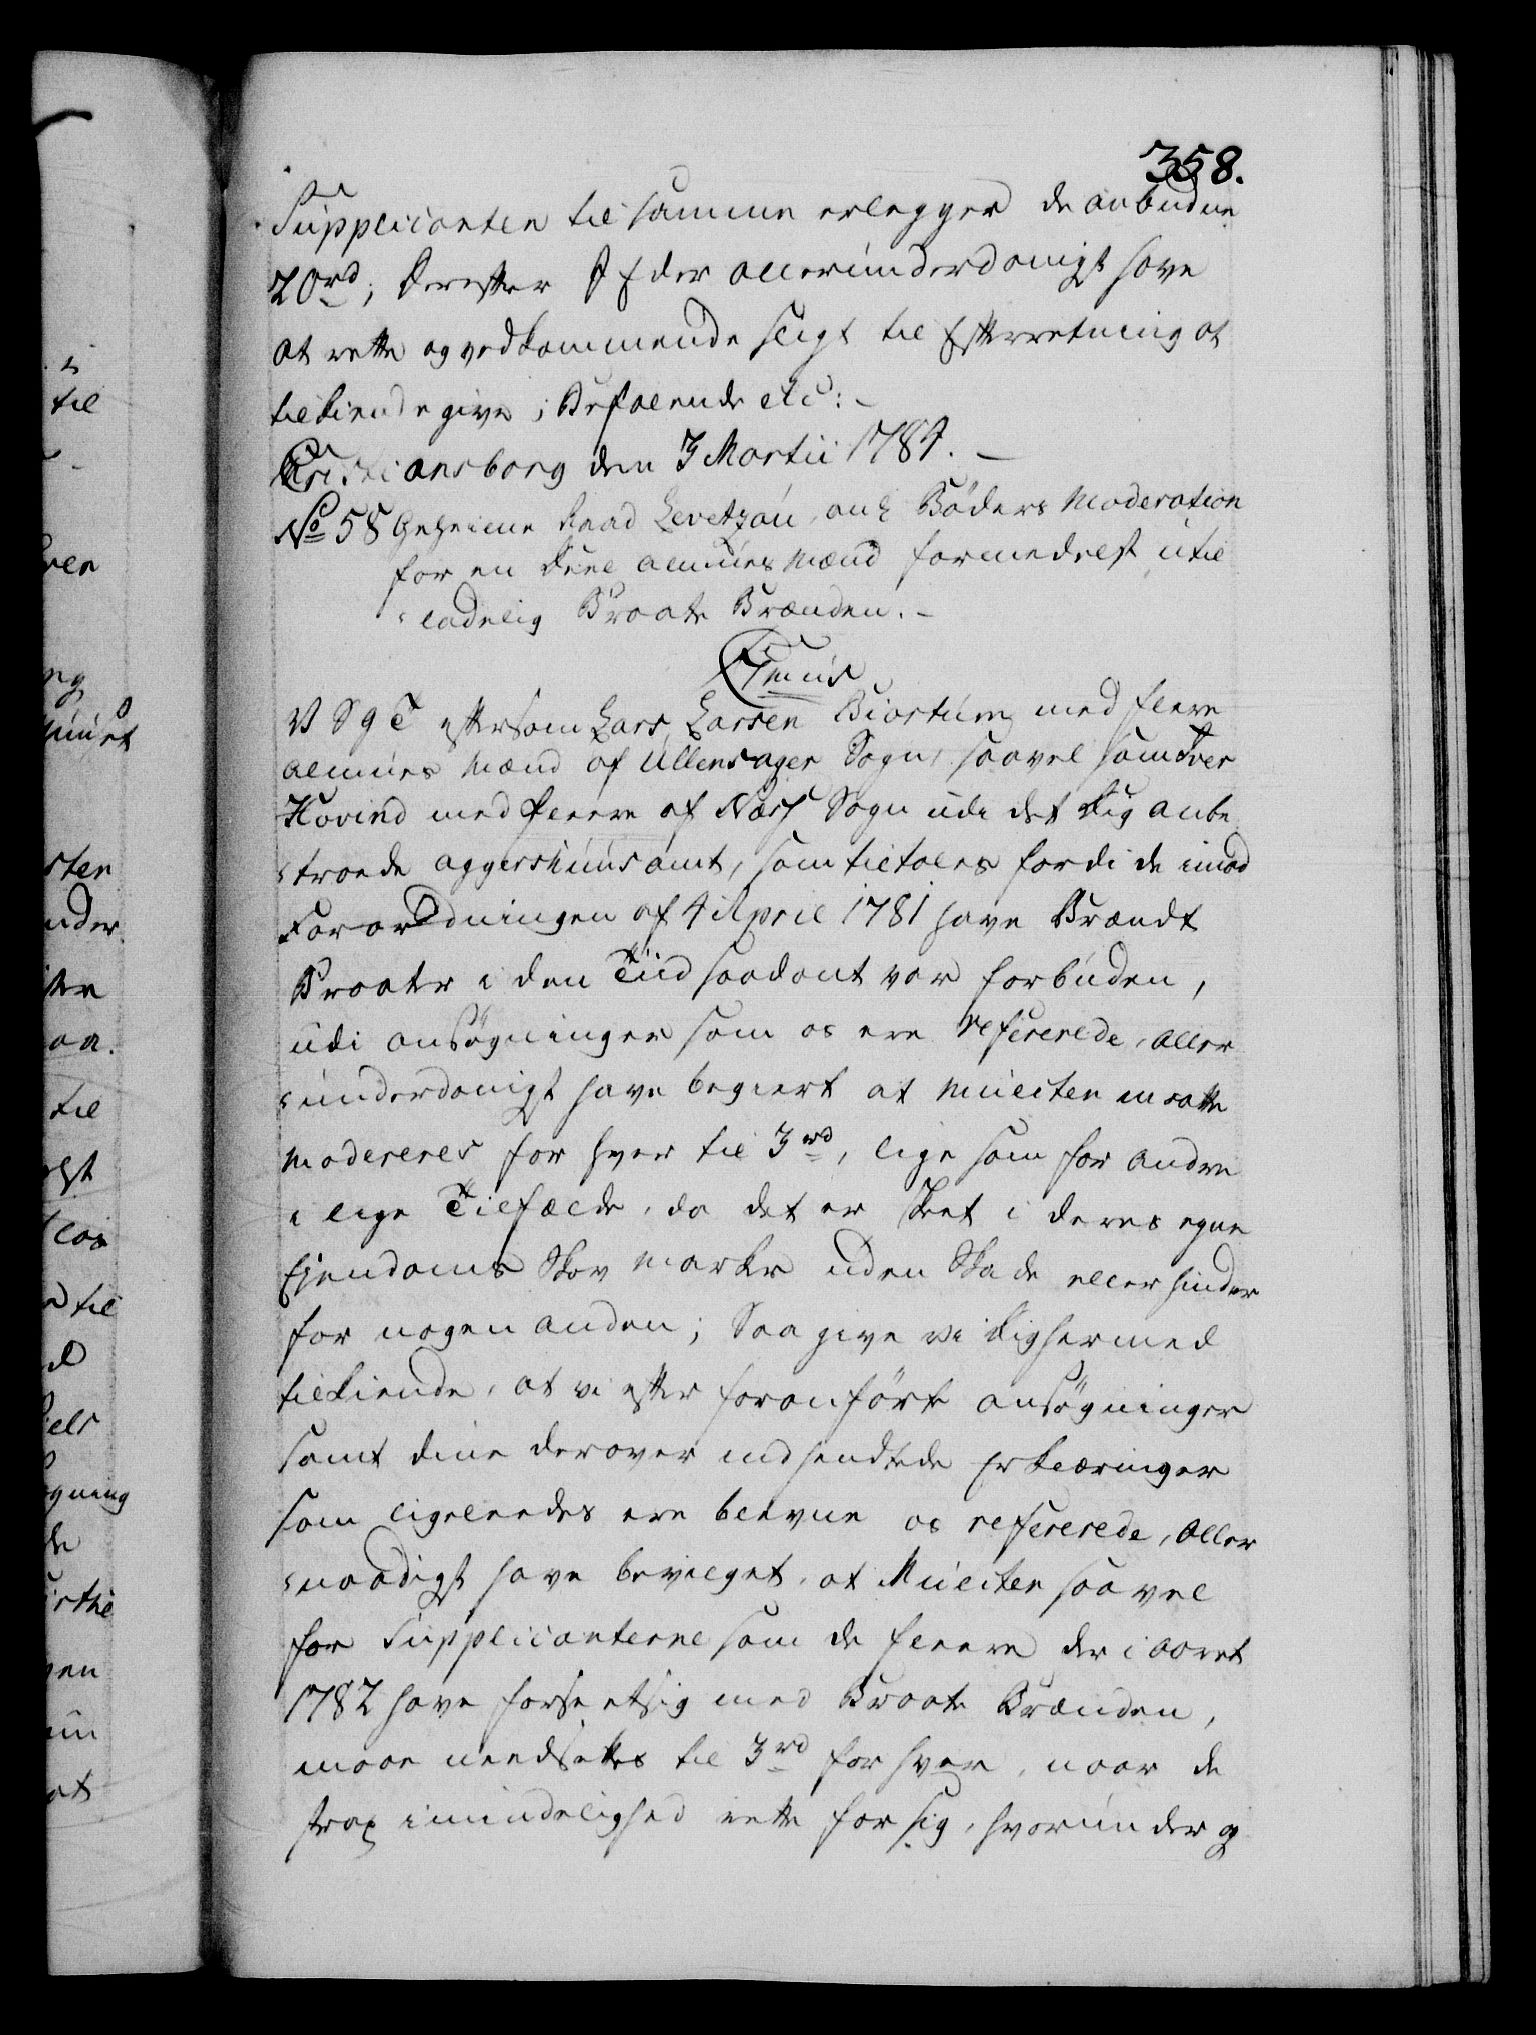 358.
Supplicanten til samme erlegger de anbudne
20rd; Derefter I Eder allerunderdanigst have
at rette og vedkommende sligt til Efterretning at
tilkiendegive; Befalende etc: –
Christiansborg den 3 Martii 1784. –
No 58 Geheime Raad Levetzau, anl Bøders Moderation
for en Deel Almues Mænd formedelst util
ladelig Braate Brænden. –
C7mus
V S G T eftersom Lars Larsen Biortum med fleere
Almues Mænd af Ullensager Sogn, saavel som Iver
Hovind med fleere af Næss Sogn udi det Dig anbe
troede Aggershuus amt, som tiltales fordi de imod
Forordningen af 4 April 1781 have Brændt
Braater i den Tiid saadant var forbuden,
udi ansøgninger som os ere refererede, Aller
underdanigst have begiert at Mulcten maatte
modereres for hver til 3rd, lige som for andre
i lige Tilfælde, da det er skeet i deres egne
Ejendoms Skov marker uden Skade eller hinder
for nogen anden; Saa give vi Dig hermed
tilkiende, at vi efter foranførte ansøgninger
samt dine derover indsendtede Erklæringer
som ligeleedes ere blevne os refererede, Aller
naadigst have bevilget, at Mulcten saavel
for Supplicanterne som de fleere der i Aaret
1782 have forseet sig med Braate Brænden,
maae needsættes til 3rd for hver, naar de
strax i mindelighed rette for sig, hvorunder og